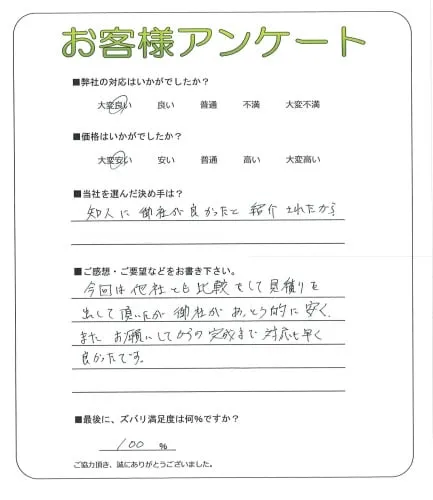 お客様アンケート
■弊社の対応はいかがでしたか？
大変良い 良い 普通 不満 大変不満
■価格はいかがでしたか？
大変安い 安い 普通 高い 大変高い
■当社を選んだ決め手は？
知人に御社が良かったと紹介されたから
■ご感想・ご要望などをお書き下さい。
今回は他社とも比較をして見積りを
出して頂いたが御社があっとう的に安く、
またお願いしてからの完成まで対応も早く
良かったです。
■最後に、ズバリ満足度は何％ですか？
100 ％
ご協力頂き、誠にありがとうございました。